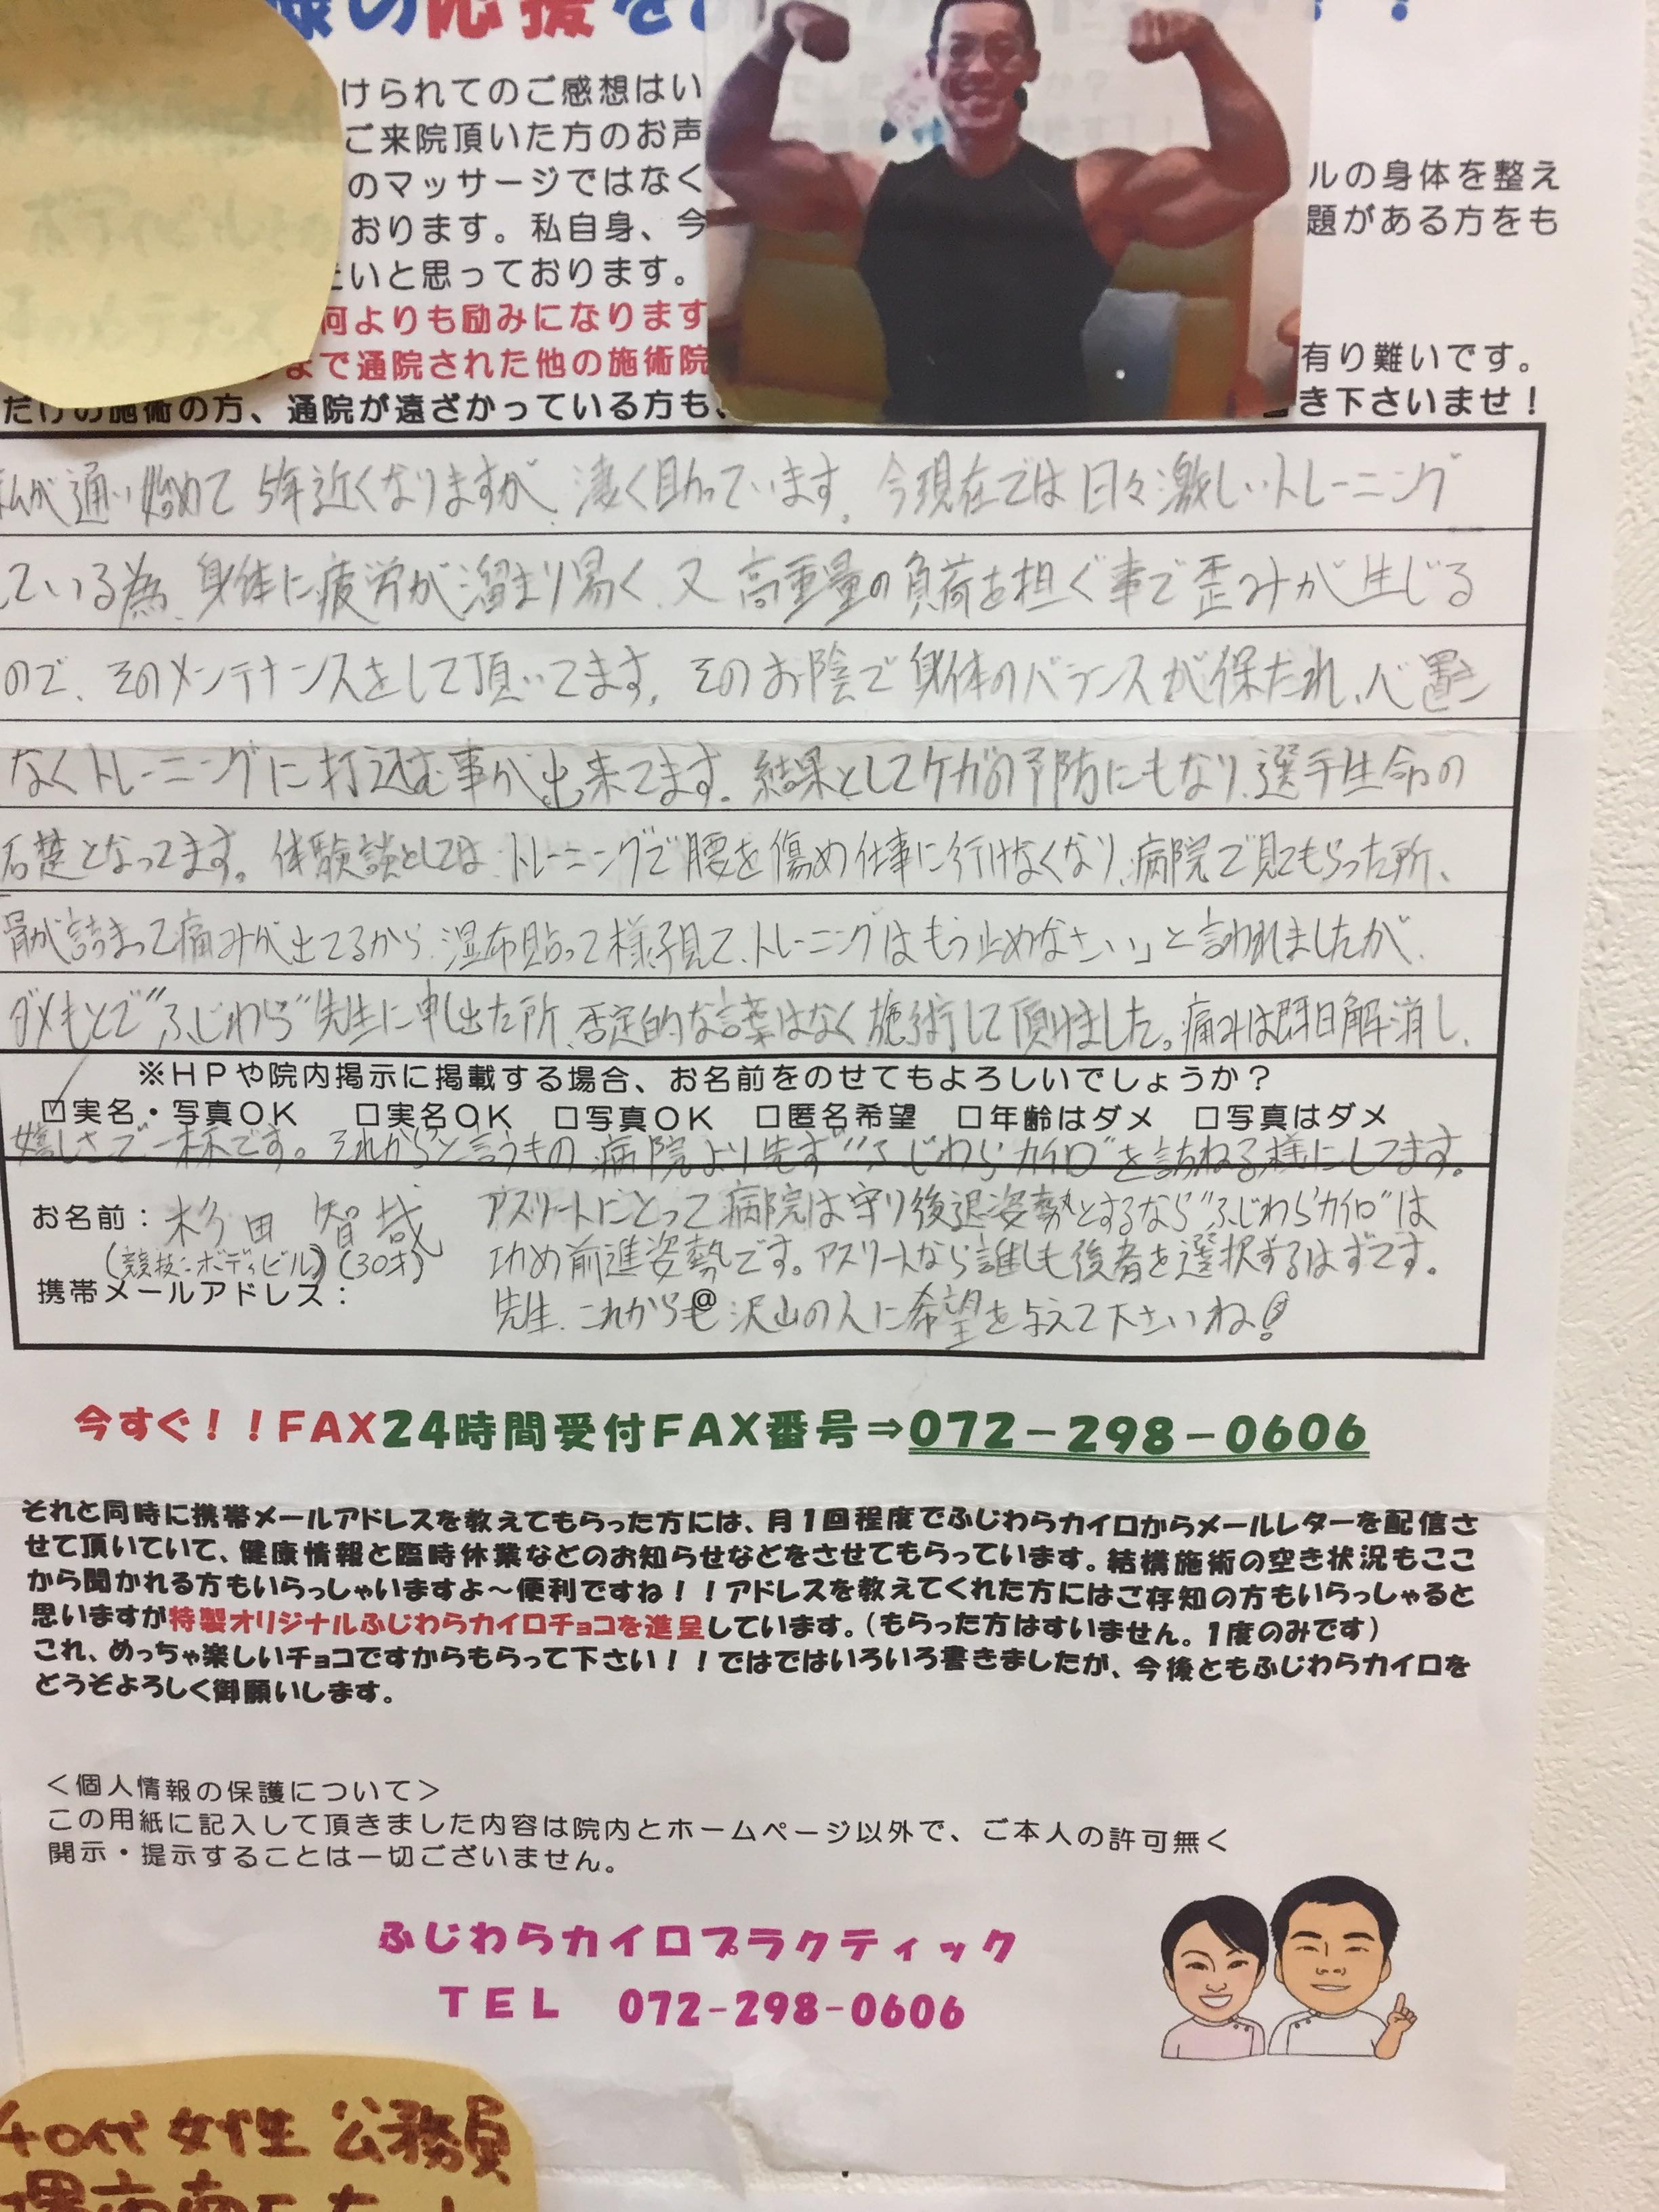 様の応援を
けられてのご感想はい
ご来院頂いた方のお声
のマッサージではなく
ルの身体を整え
おります。私自身、今
題がある方をも
たいと思っております。
何よりも励みになります
まで通院された他の施術院
有り難いです。
だけの施術の方、通院が遠ざかっている方も、
き下さいませ！
私が通い始めて5年近くなりますが、凄く助っています。今現在では日々激しいトレーニング
している為、身体に疲労が溜まり易く、又高重量の負荷を担ぐ事で歪みが生じる
ので、そのメンテナンスをして頂いてます。そのお陰で身体のバランスが保たれ、心置き
なくトレーニングに打込む事が出来てます。結果としてケガの予防にもなり、選手生命の
石楚となってます。体験談としては、トレーニングで腰を傷め仕事に行けなくなり、病院で見てもらった所、
骨が詰まって痛みが出てるから、湿布貼って様子見て、トレーニングはもう止めなさい」と言われましたが、
ダメもとで"ふじわら"先生に申し出た所、否定的な言葉はなく施術して頂けました。痛みは即日解消し、
※ＨＰや院内掲示に掲載する場合、お名前をのせてもよろしいでしょうか？
☑実名・写真ＯＫ　□実名ＯＫ　□写真ＯＫ　□匿名希望　□年齢はダメ　□写真はダメ
嬉しさで一杯です。それからと言うもの病院より先ず"ふじわらカイロ"を訪ねる様にしてます。
お名前：杉田 智哉
アスリートにとって病院は守り後退姿勢とするなら"ふじわらカイロ"は
(競技：ボディビル) (30才)
攻め前進姿勢です。アスリートなら誰しも後者を選択するはずです。
携帯メールアドレス：　　　　＠
先生、これからも沢山の人に希望を与えて下さいね！
今すぐ！！ＦＡＸ24時間受付ＦＡＸ番号⇒072－298－0606
それと同時に携帯メールアドレスを教えてもらった方には、月１回程度でふじわらカイロからメールレターを配信さ
せて頂いていて、健康情報と臨時休業などのお知らせなどをさせてもらっています。結構施術の空き状況もここ
から聞かれる方もいらっしゃいますよ～便利ですね！！アドレスを教えてくれた方にはご存知の方もいらっしゃると
思いますが特製オリジナルふじわらカイロチョコを進呈しています。（もらった方はすいません。１度のみです）
これ、めっちゃ楽しいチョコですからもらって下さい！！ではではいろいろ書きましたが、今後ともふじわらカイロを
どうぞよろしく御願いします。
＜個人情報の保護について＞
この用紙に記入して頂きました内容は院内とホームページ以外で、ご本人の許可無く
開示・提示することは一切ございません。
ふじわらカイロプラクティック
ＴＥＬ　072-298-0606
40代 女性 公務員